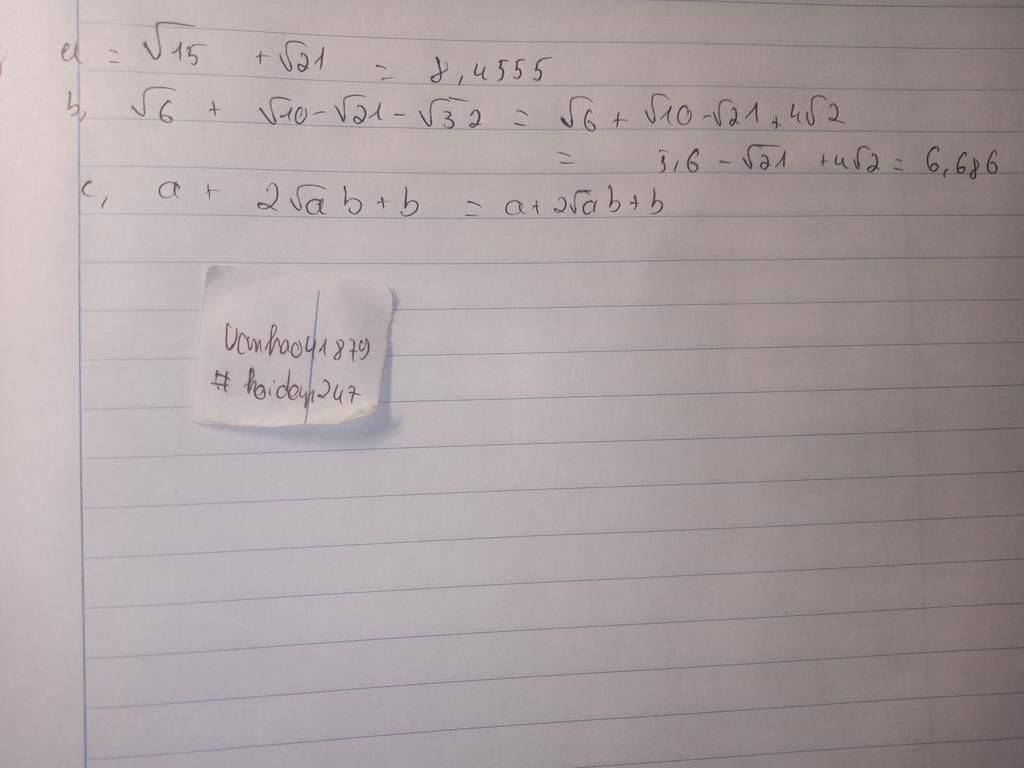 a = √15 + √21 = 8,4555
b, √6 + √10 - √21 - √32 = √6 + √10 - √21 + 4√2
= 5,6 - √21 + 4√2 = 6,686
c, a + 2√ab + b = a + 2√ab + b
# hoidap247